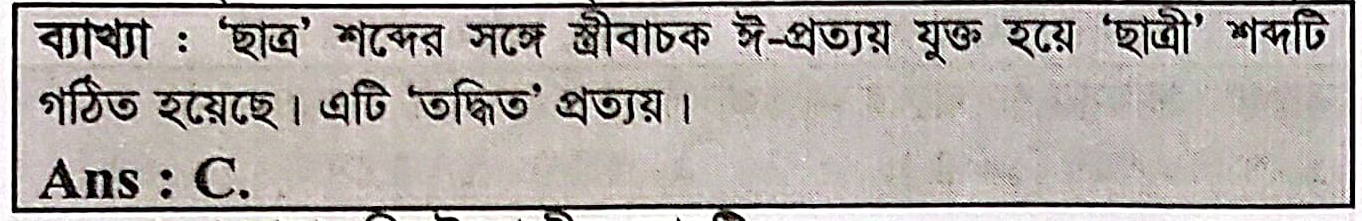 ব্যাখ্যা : ‘ছাত্র’ শব্দের সঙ্গে স্ত্রীবাচক ঈ-প্রত্যয় যুক্ত হয়ে ‘ছাত্রী’ শব্দটি
গঠিত হয়েছে। এটি ‘তদ্ধিত’ প্রত্যয়।
Ans : C.